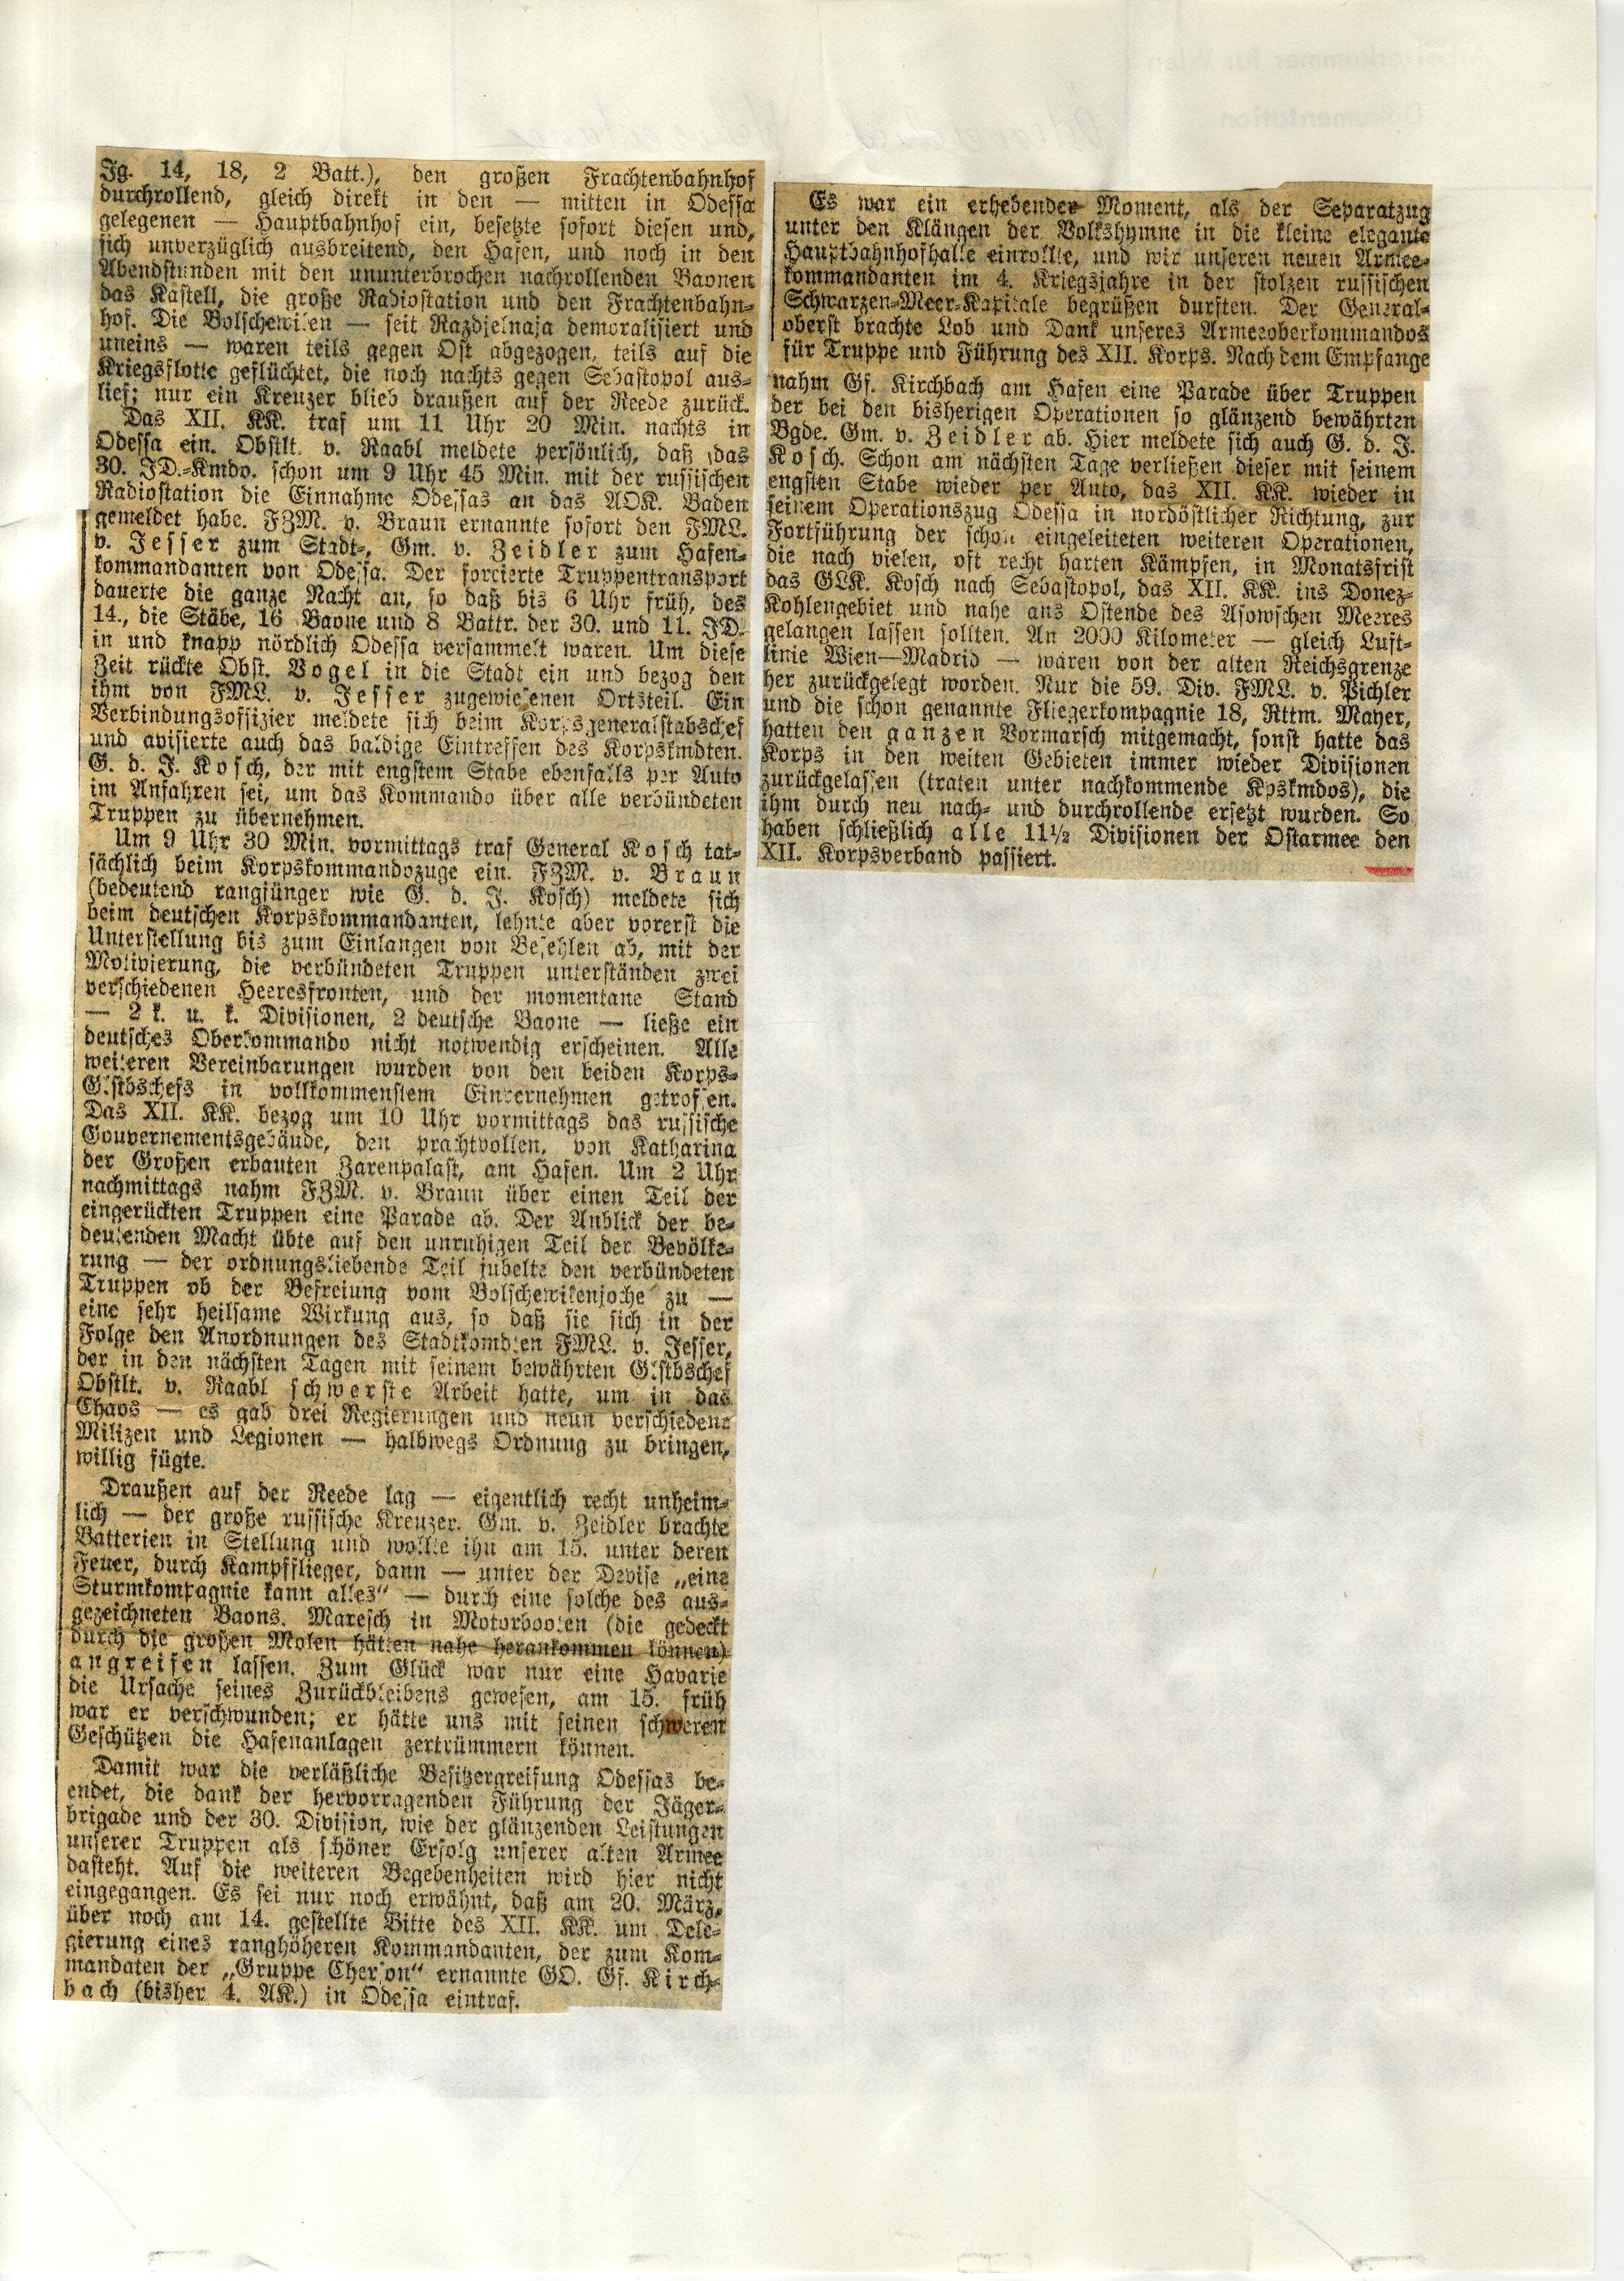 Jg. 14, 18, 2 Batt.), den großen Frachtenbahnhof
durchrollend, gleich direkt in den — mitten in Odessa
gelegenen — Hauptbahnhof ein, besetzte sofort diesen und,
sich unverzüglich ausbreitend, den Hafen, und noch in den
Abendstunden mit den ununterbrochen nachrollenden Baonen
das Kastell, die große Radiostation und den Frachtenbahn-
hof. Die Bolschewiken — seit Razdjelnaja demoralisiert und
uneins — waren teils gegen Ost abgezogen, teils auf die
Kriegsflotte geflüchtet, die noch nachts gegen Sebastopol aus-
lief; nur ein Kreuzer blieb draußen auf der Reede zurück.
Das XII. KK. traf um 11 Uhr 20 Min. nachts in
Odessa ein. Obstlt. v. Raabl meldete persönlich, daß das
30. JD.-Kmdo. schon um 9 Uhr 45 Min. mit der russischen
Radiostation die Einnahme Odessas an das AOK. Baden
gemeldet habe. FZM. v. Braun ernannte sofort den FML.
v. Jesser zum Stadt-, Gm. v. Zeidler zum Hafen-
kommandanten von Odessa. Der forcierte Truppentransport
dauerte die ganze Nacht an, so daß bis 6 Uhr früh, des
14., die Stäbe, 16 Baone und 8 Battr. der 30. und 11. JD.
in und knapp nördlich Odessa versammelt waren. Um diese
Zeit rückte Obst. Vogel in die Stadt ein und bezog den
ihm von FML. v. Jesser zugewiesenen Ortsteil. Ein
Verbindungsoffizier meldete sich beim Korpsgeneralstabschef
und avisierte auch das baldige Eintreffen des Korpskmdten.
G. d. J. Kosch, der mit engstem Stabe ebenfalls per Auto
im Anfahren sei, um das Kommando über alle verbündeten
Truppen zu übernehmen.
Um 9 Uhr 30 Min. vormittags traf General Kosch tat-
sächlich beim Korpskommandozuge ein. FZM. v. Braun
(bedeutend rangjünger wie G. d. J. Kosch) meldete sich
beim deutschen Korpskommandanten, lehnte aber vorerst die
Unterstellung bis zum Einlangen von Befehlen ab, mit der
Motivierung, die verbündeten Truppen unterständen zwei
verschiedenen Heeresfronten, und der momentane Stand
— 2 k. u. k. Divisionen, 2 deutsche Baone — ließe ein
deutsches Oberkommando nicht notwendig erscheinen. Alle
weiteren Vereinbarungen wurden von den beiden Korps-
Glstbschefs in vollkommenstem Einvernehmen getroffen.
Das XII. KK. bezog um 10 Uhr vormittags das russische
Gouvernementsgebäude, den prachtvollen, von Katharina
der Großen erbauten Zarenpalast, am Hafen. Um 2 Uhr
nachmittags nahm FZM. v. Braun über einen Teil der
eingerückten Truppen eine Parade ab. Der Anblick der be-
deutenden Macht übte auf den unruhigen Teil der Bevölke-
rung — der ordnungsliebende Teil jubelte den verbündeten
Truppen ob der Befreiung vom Bolschewikenjoche zu —
eine sehr heilsame Wirkung aus, so daß sie sich in der
Folge den Anordnungen des Stadtkomdten FML. v. Jesser,
der in den nächsten Tagen mit seinem bewährten Glstbschef
Obstlt. v. Raabl schwerste Arbeit hatte, um in das
Chaos — es gab drei Regierungen und neun verschiedene
Milizen und Legionen — halbwegs Ordnung zu bringen,
willig fügte.
Draußen auf der Reede lag — eigentlich recht unheim-
lich — der große russische Kreuzer. Gm. v. Zeidler brachte
Batterien in Stellung und wollte ihn am 15. unter deren
Feuer, durch Kampfflieger, dann — unter der Devise „eine
Sturmkompagnie kann alles“ — durch eine solche des aus-
gezeichneten Baons. Maresch in Motorbooten (die gedeckt
durch die großen Molen hätten nahe herankommen können)
angreifen lassen. Zum Glück war nur eine Havarie
die Ursache seines Zurückbleibens gewesen, am 15. früh
war er verschwunden; er hätte uns mit seinen schweren
Geschützen die Hafenanlagen zertrümmern können.
Damit war die verläßliche Besitzergreifung Odessas be-
endet, die dank der hervorragenden Führung der Jäger-
brigade und der 30. Division, wie der glänzenden Leistungen
unserer Truppen als schöner Erfolg unserer alten Armee
dasteht. Auf die weiteren Begebenheiten wird hier nicht
eingegangen. Es sei nur noch erwähnt, daß am 20. März,
über noch am 14. gestellte Bitte des XII. KK. um Dele-
gierung eines ranghöheren Kommandanten, der zum Kom-
mandaten der „Gruppe Cherson“ ernannte GO. Gf. Kirch-
bach (bisher 4. AK.) in Odessa eintraf.
Es war ein erhebender Moment, als der Separatzug
unter den Klängen der Volkshymne in die kleine elegante
Hauptbahnhofhalle einrollte, und wir unseren neuen Armee-
kommandanten im 4. Kriegsjahre in der stolzen russischen
Schwarzen-Meer-Kapitale begrüßen durften. Der General-
oberst brachte Lob und Dank unseres Armeeoberkommandos
für Truppe und Führung des XII. Korps. Nach dem Empfange
nahm Gf. Kirchbach am Hafen eine Parade über Truppen
der bei den bisherigen Operationen so glänzend bewährten
Bgde. Gm. v. Zeidler ab. Hier meldete sich auch G. d. J.
Kosch. Schon am nächsten Tage verließen dieser mit seinem
engsten Stabe wieder per Auto, das XII. KK. wieder in
seinem Operationszug Odessa in nordöstlicher Richtung, zur
Fortführung der schon eingeleiteten weiteren Operationen,
die nach vielen, oft recht harten Kämpfen, in Monatsfrist
das GLK. Kosch nach Sebastopol, das XII. KK. ins Donez-
Kohlengebiet und nahe ans Ostende des Asowschen Meeres
gelangen lassen sollten. An 2000 Kilometer — gleich Luft-
linie Wien—Madrid — waren von der alten Reichsgrenze
her zurückgelegt worden. Nur die 59. Div. FML. v. Pichler
und die schon genannte Fliegerkompagnie 18, Rttm. Mayer,
hatten den ganzen Vormarsch mitgemacht, sonst hatte das
Korps in den weiten Gebieten immer wieder Divisionen
zurückgelassen (traten unter nachkommende Kpskmdos), die
ihm durch neu nach- und durchrollende ersetzt wurden. So
haben schließlich alle 11½ Divisionen der Ostarmee den
XII. Korpsverband passiert.